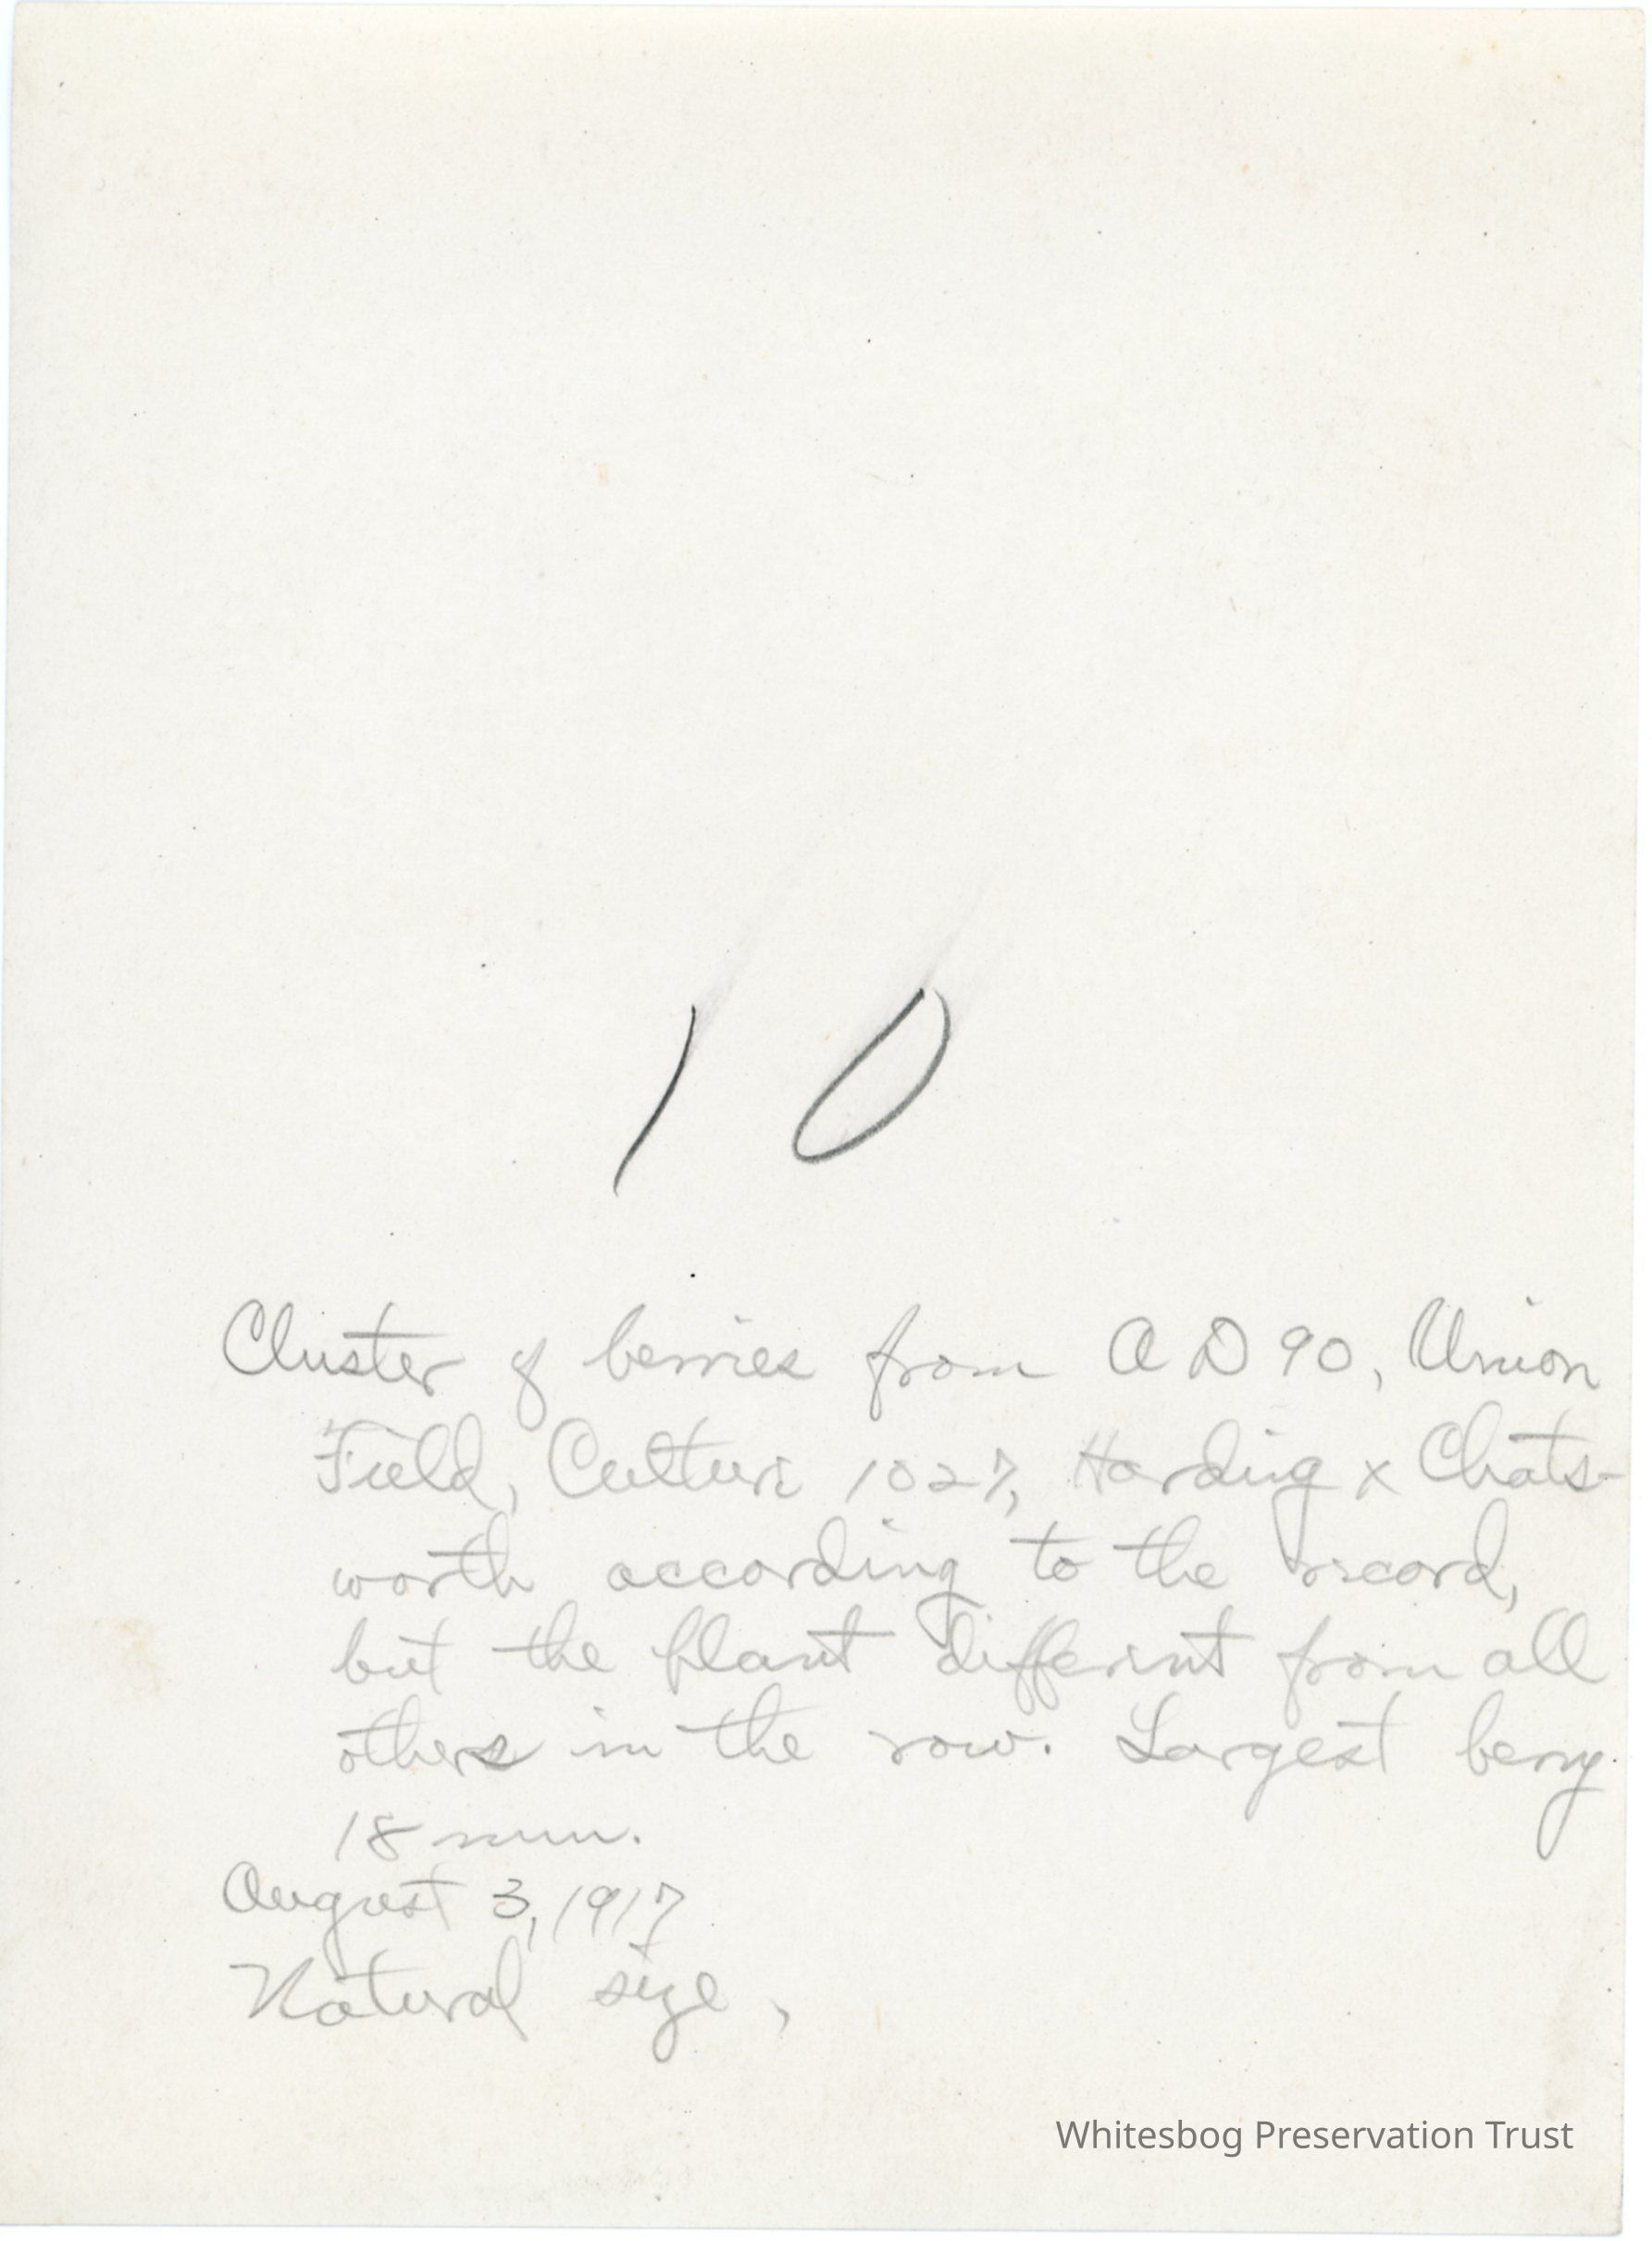 10
Cluster of berries from AD90, Union
Field, Culture 1027, Harding x Chats-
worth according to the record,
but the plant different from all
others in the row. Largest berry
18 mm.
August 3, 1917
Natural size.
Whitesbog Preservation Trust